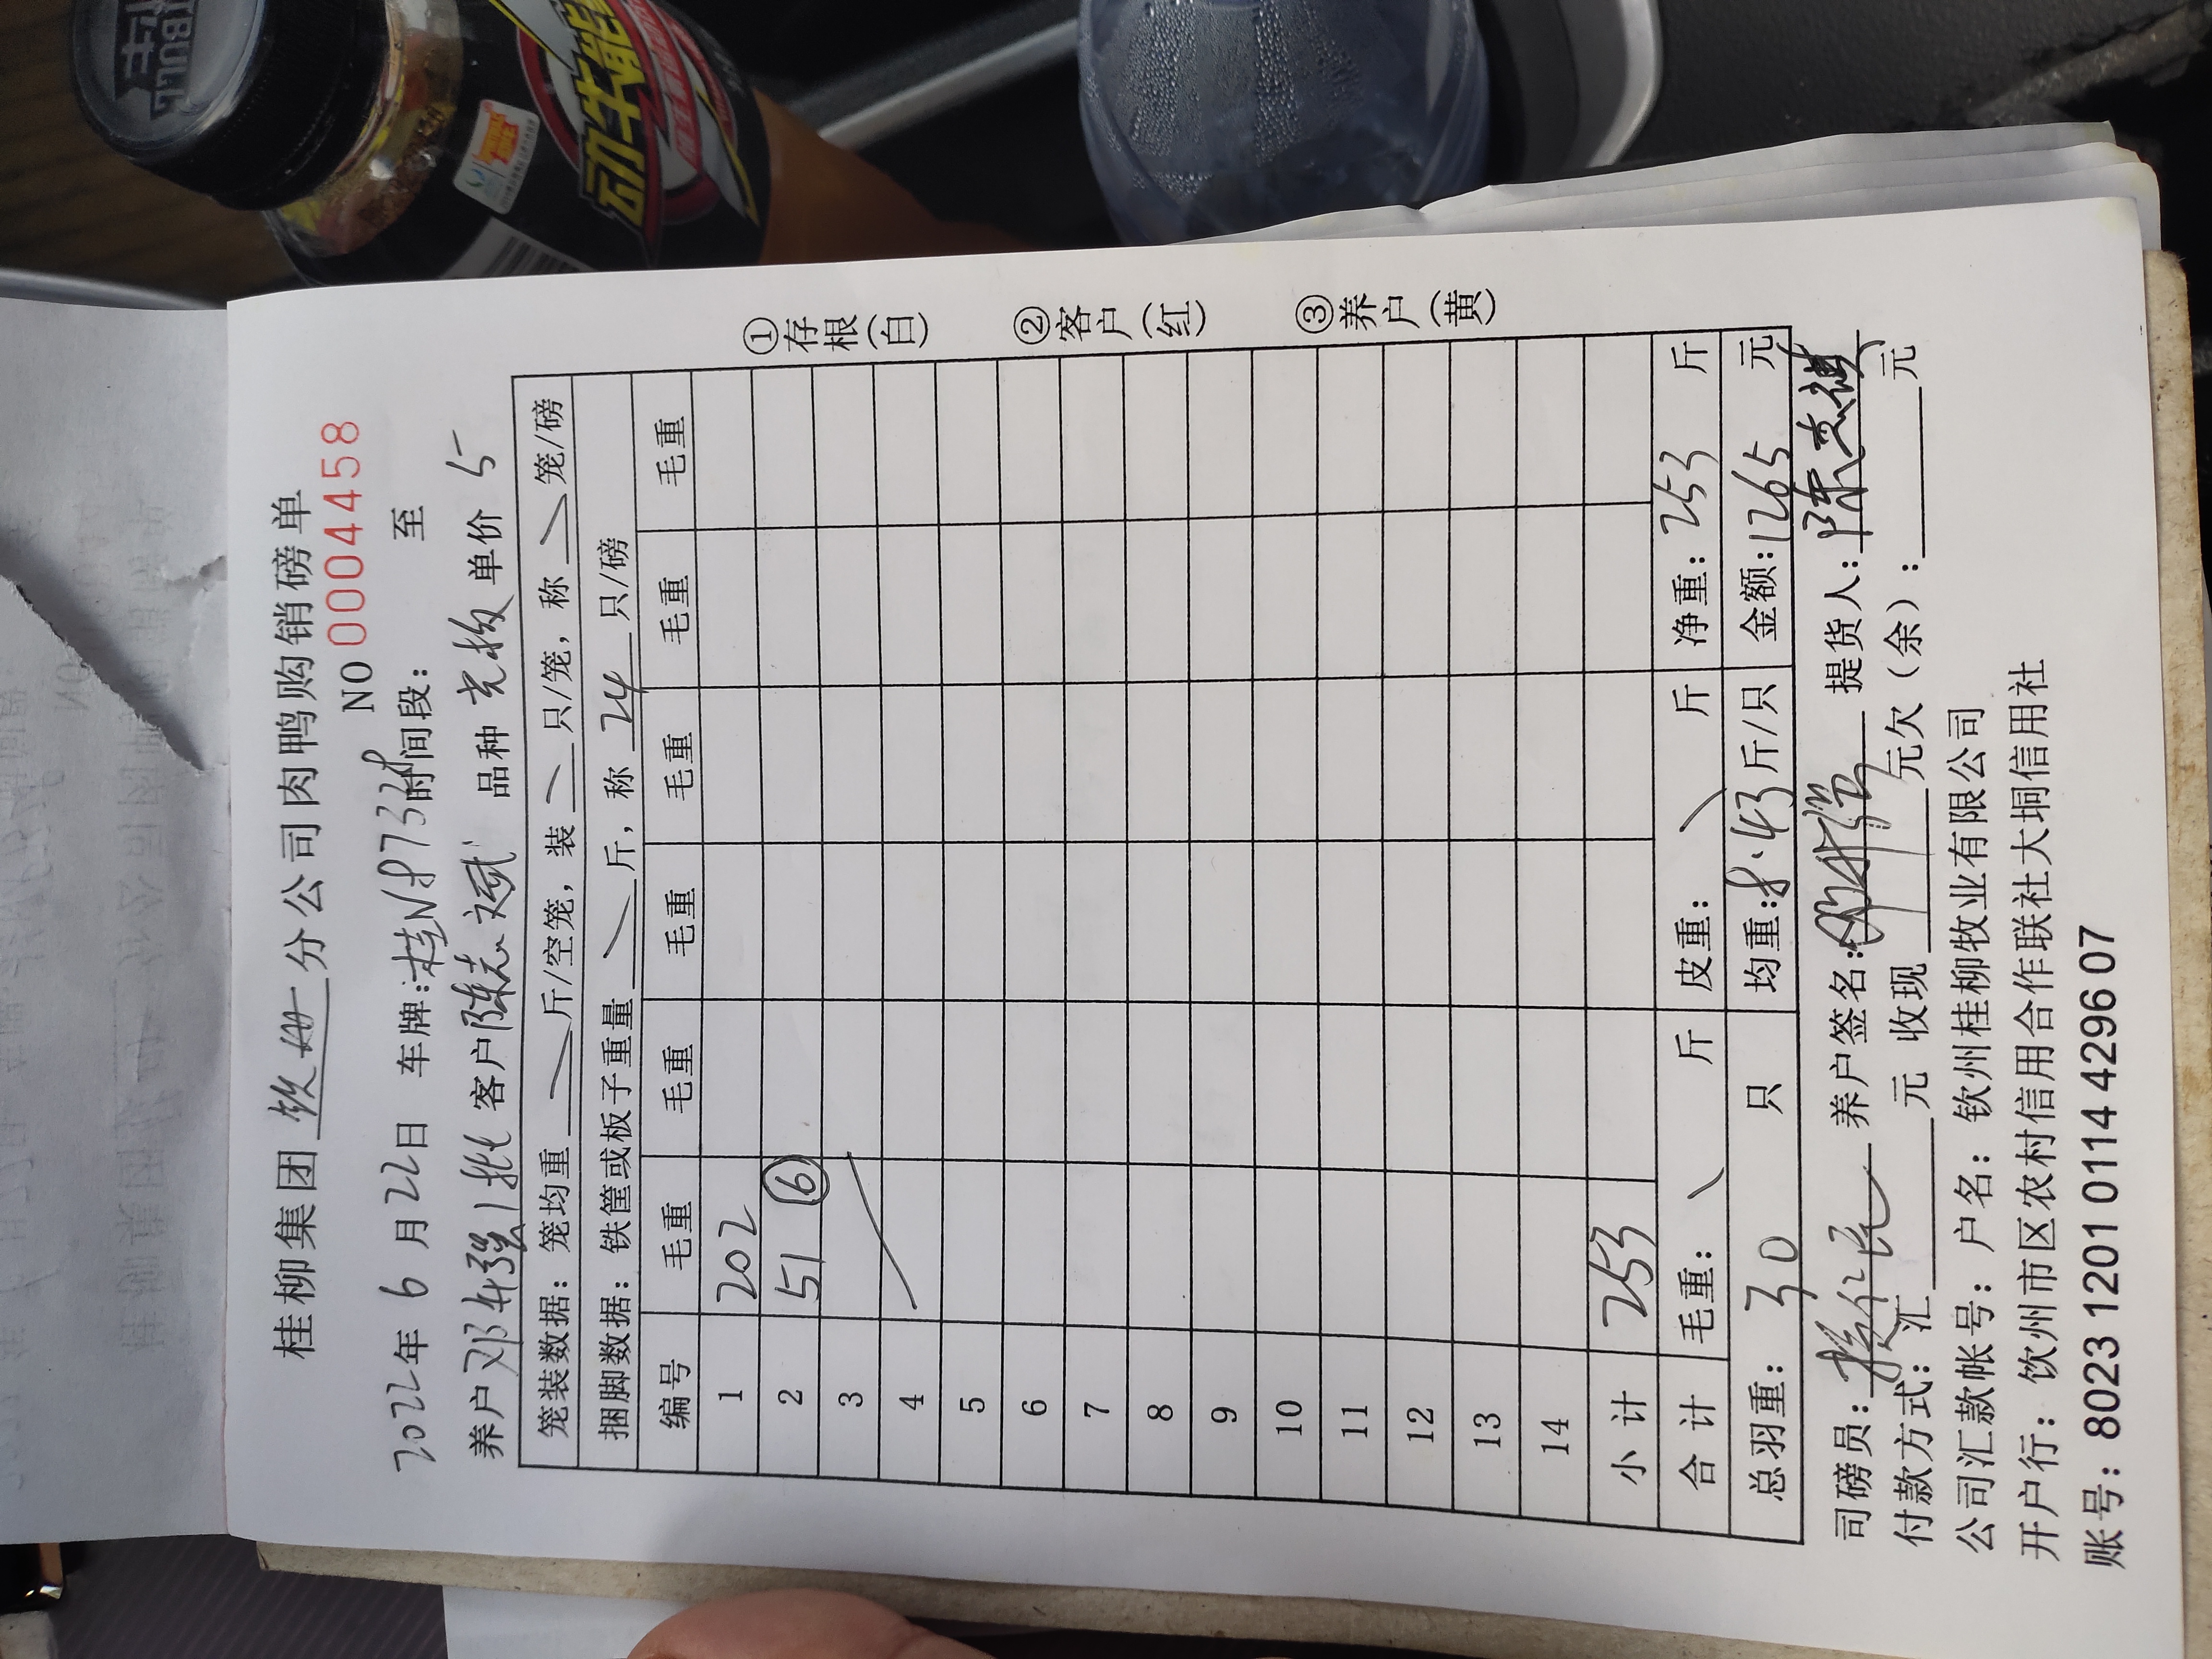 桂柳集团 钦州 分公司肉鸭购销磅单
NO 0004458
2022年 6 月 22日 车牌:桂N8732 时间段: 至
养户 邓 强 1批 客户 陈志斌 品种 单价 5
笼装数据: 笼均重 斤/空笼, 装 只/笼, 称 笼/磅
捆脚数据: 铁筐或板子重量 斤, 称 24 只/磅
编号 毛重 毛重 毛重 毛重 毛重 毛重
1 202
2 51 ⑥
3
4
5
6
7
8
9
10
11
12
13
14
小 计 253
合 计 毛重: 斤 皮重: 斤 净重: 253 斤
总羽重: 30 只 均重:8.43斤/只 金额:1265 元
司磅员: 养户签名: 提货人:陈
付款方式: 汇 元 收现 元欠(余): 元
公司汇款帐号: 户名: 钦州桂柳牧业有限公司
开户行: 钦州市区农村信用合作联社大垌信用社
账号: 8023 1201 0114 4296 07
①存根(白)
②客户(红)
③养户(黄)
动牛能
BULL